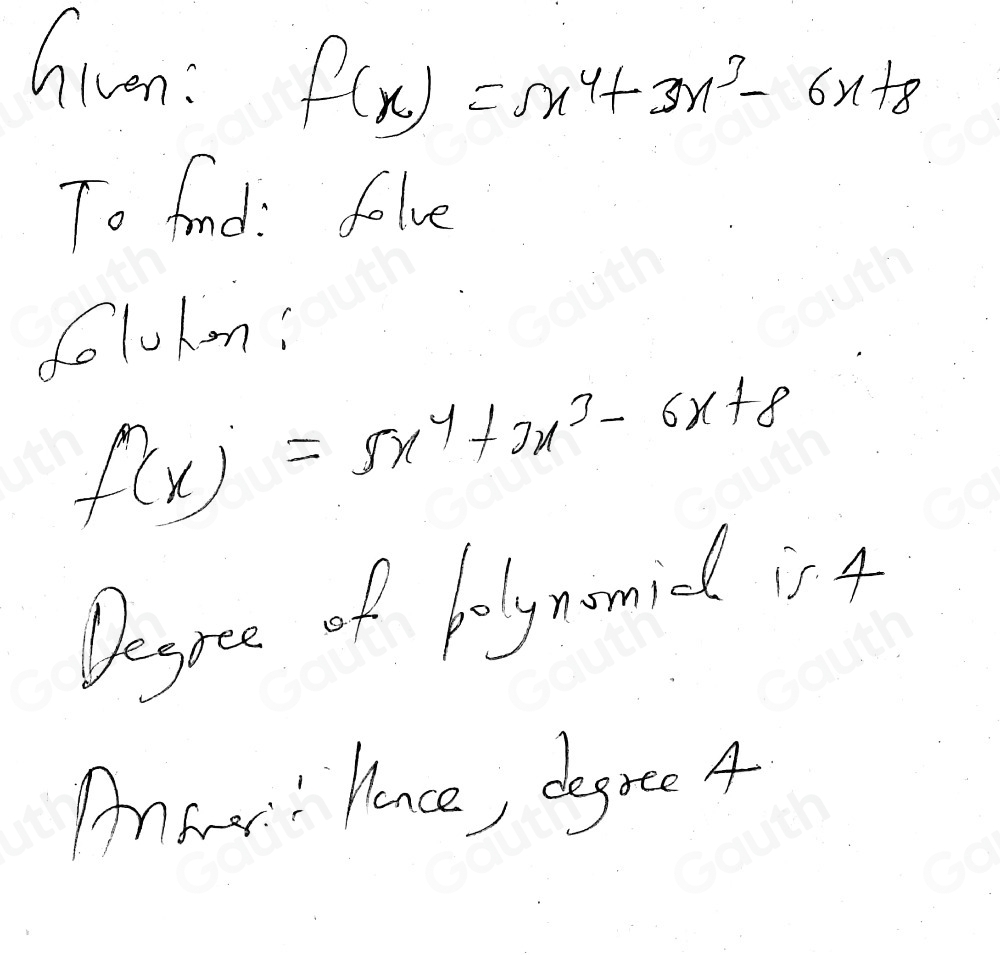 Given: f(x) = 5x⁴+3x³- 6x+8
To find: Solve
Solution:
f(x) = 5x⁴+3x³- 6x+8
Degree of polynomial is 4
Answer: Hence, degree 4